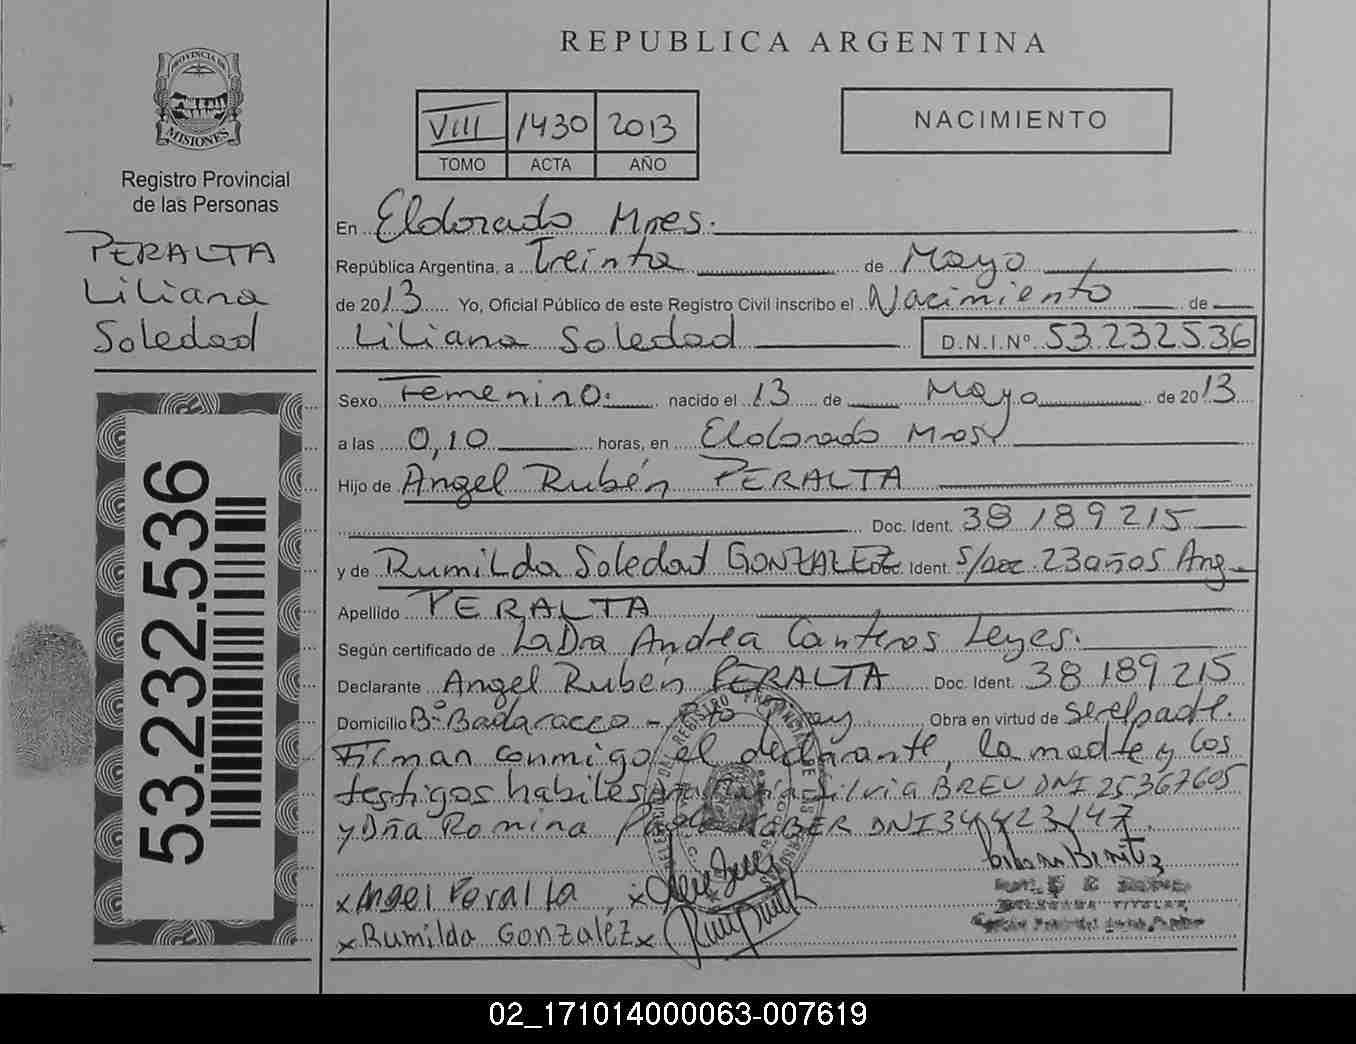 REPUBLICA ARGENTINA
PROVINCIA DE
MISIONES
Registro Provincial
de las Personas
PERALTA
Liliana
Soledad
53.232.536
VIII 1430 2013
TOMO ACTA AÑO
NACIMIENTO
En Eldorado Mnes.
República Argentina, a Treinta de Mayo
de 2013 Yo, Oficial Público de este Registro Civil inscribo el Nacimiento de
Liliana Soledad D.N.I.Nº 53.232.536
Sexo Femenino. nacido el 13 de Mayo de 2013
a las 0,10 horas, en Eldorado Mnes
Hijo de Angel Rubén PERALTA
Doc. Ident. 38189215
y de Rumilda Soledad GONZALEZ Doc. Ident. S/Doc. 23años Arg
Apellido PERALTA
Según certificado de La Dra Andrea Canteros Leyes.
Declarante Angel Rubén PERALTA Doc. Ident. 38189215
Domicilio Bº Badaracco - Pto Obra en virtud de ser el padre.
Firman conmigo el declarante, la madre y los
testigos habiles Silvia BREU DNI 25367605
y Dña Romina DNI 34423147.
x Angel Peralta x
x Rumilda Gonzalez x
02_171014000063-007619